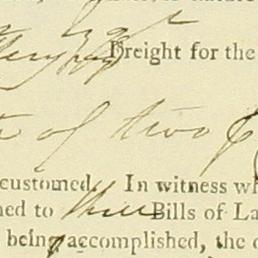 Freight for the
of two
customed. In witness wh
ned to three Bills of La
being accomplished, the o